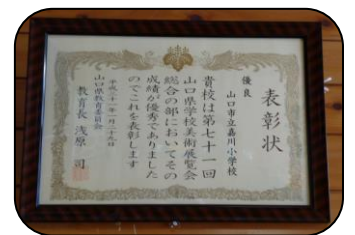 表彰状
優良
山口市立嘉川小学校
貴校は第七十一回
山口県学校美術展覧会
総合の部においてその
成績が優秀でありました
のでこれを表彰します
山口県教育委員会
教育長 浅原 司